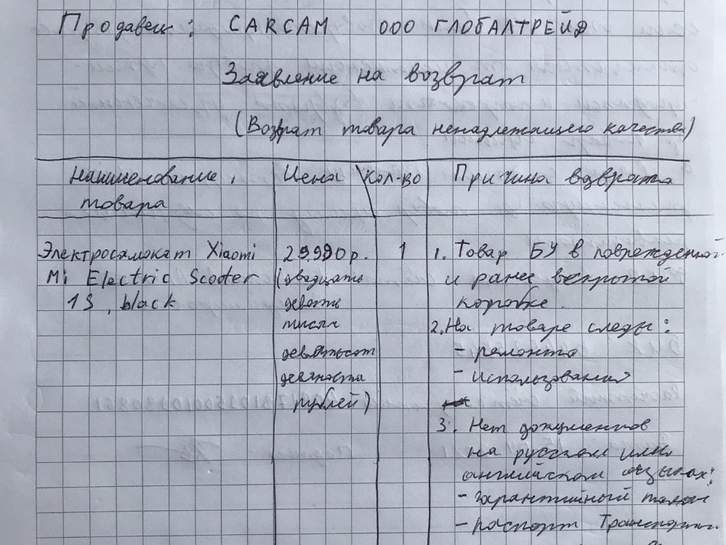 Продавец: CARCAM ООО ГЛОБАЛТРЕЙД
Заявление на возврат
(Возврат товара ненадлежащего качества)
Наименование товара
Цена
Кол-во
Причина возврата
Электросамокат Xiaomi
Mi Electric Scooter
1S, black
29.990 р.
(двадцать
девять
тысяч
девятьсот
девяноста
рублей)
1
1. Товар БУ в поврежденной
и ранее вскрытой
коробке.
2. На товаре следы:
- ремонта
- использования
3. Нет документов
на русском или
английском языках:
- гарантийный талон
- паспорт Транспортн.